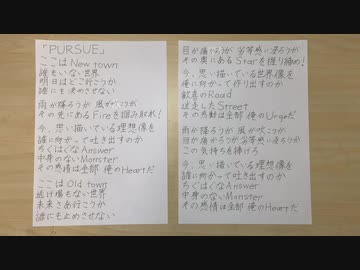 「PURSUE」
ここは New town
誰もいない世界
明日はどこ行こうか
誰にも決めさせない
雨が降ろうが 風が吹こうが
その先にある Fireを掴み取れ!
今、思い描いている理想像を
誰に向かって吐き出すのか
ちぐはぐなAnswer
中身のないMonster
その感情は全部 俺のHeartだ
ここは Old town
逃げ場もない世界
未来さあ行こうか
誰にも止めさせない
目が痛かろうが 劣等感に浸ろうが
その奥にある Starを握り締め!
今、思い描いている世界像を
俺に向かって作り出すのか
歓喜のRoad
迷走したStreet
その感動は全部 俺のUrgeだ!
雨が降ろうが 風が吹こうが
目が痛かろうが 劣等感に浸ろうが
この気持ちを捧げろ
今、思い描いている理想像を
誰に向かって吐き出すのか
ちぐはぐなAnswer
中身のないMonster
その感情は全部 俺のHeartだ